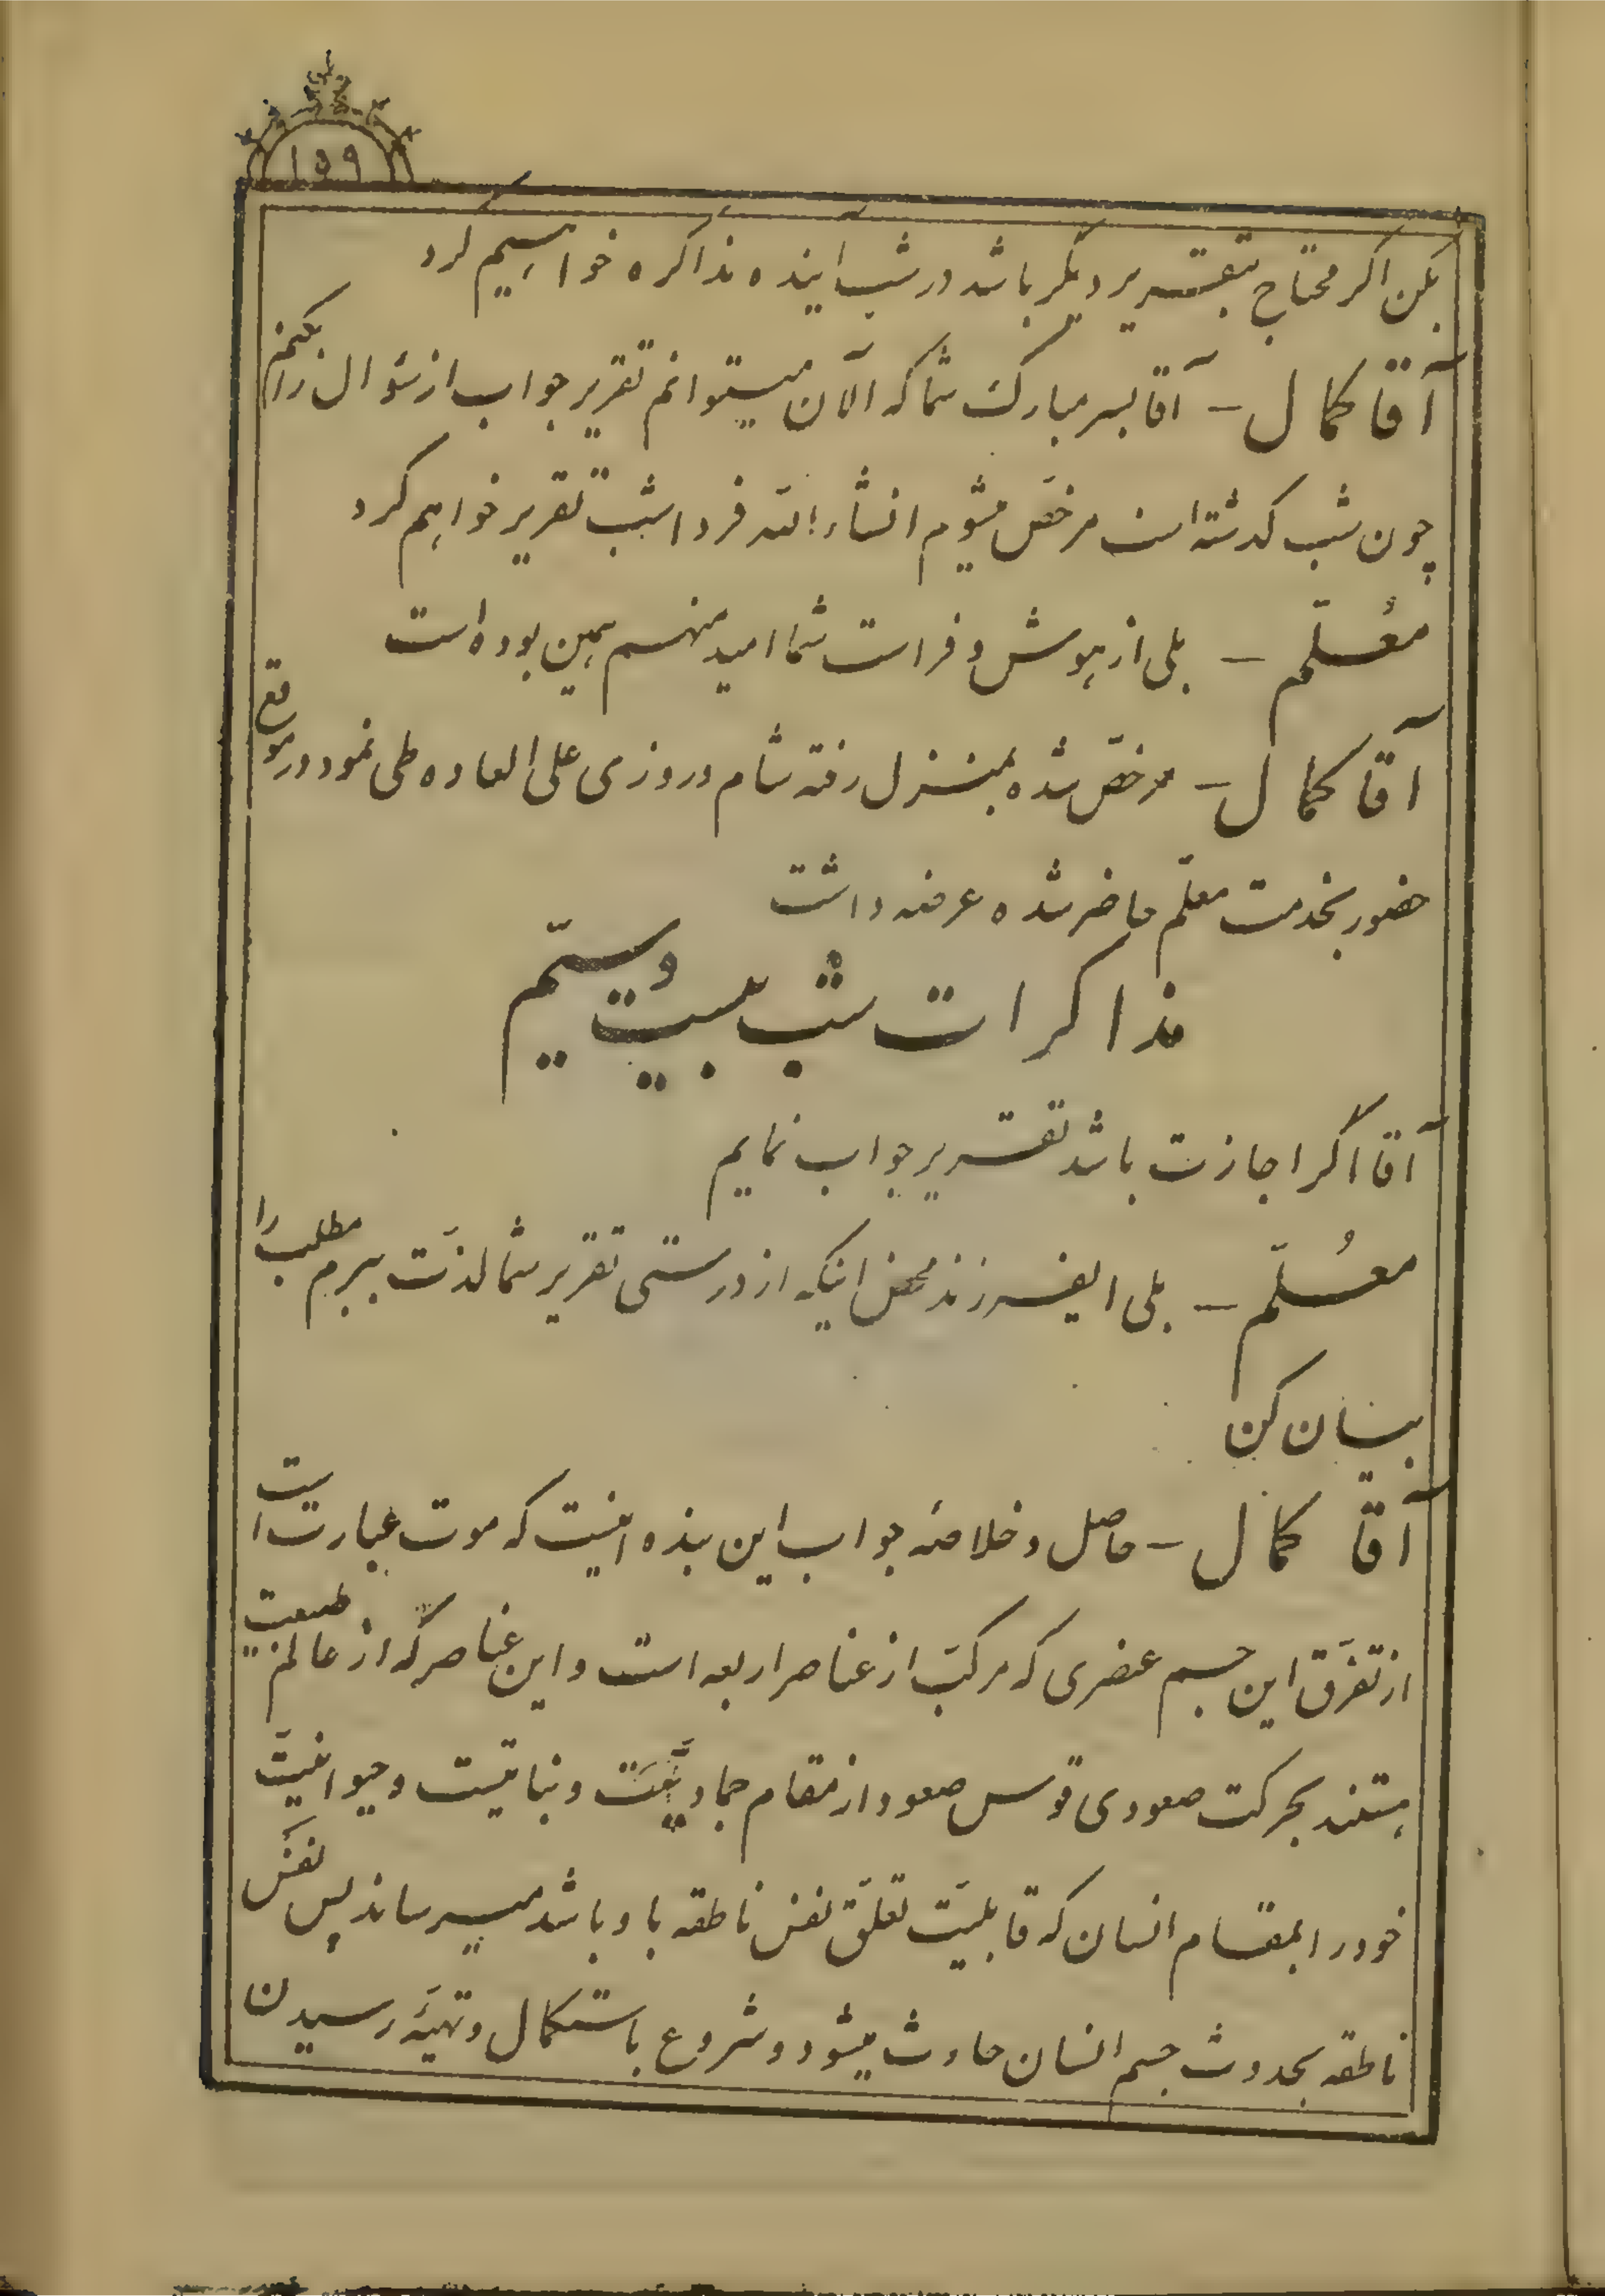 ۱۵۹
بکن اکر محتاج بتقریر دیکر باشد در شب اینده مذاکره خواهیم کرد
آقا کمال – آقا بسر مبارک شما که الآن میتوانم تقریر جواب از سؤال را بکنم
چون شب کذشته است مرخّص میشوم انشاء الله فردا شب تقریر خواهم کرد
مُعلّم – بلی از هوش و فراست شما امید منهم همین بوده است
آقا کمال – مرخّص شده بمنزل رفته شام و روزی علی العاده طی نمود در موقع
حضور بخدمت معلّم حاضر شده عرضه داشت
مذاکرات شب بیست و سیّم
آقا اکر اجازت باشد تقریر جواب نمایم
معُلّم – بلی ایفرزند محض اینکه از درستی تقریر شما لذّت ببرم مطلب را
بیان کن
آقا کمال – حاصل و خلاصه جواب این بنده اینست که موت عبارت است
از تفرّق این جسم عنصری که مرکّب از عناصر اربعه است و این عناصر که از عالم طبیعت
هستند بحرکت صعودی قوس صعود از مقام جمادیّت و نباتیّت و حیوانیّت
خود را بمقام انسان که قابلیّت تعلّق نفس ناطقه باو باشد میرساند پس نفس
ناطقه بحدوث جسم انسان حادث میشود و شروع باستکمال و تهیّه رسیدن